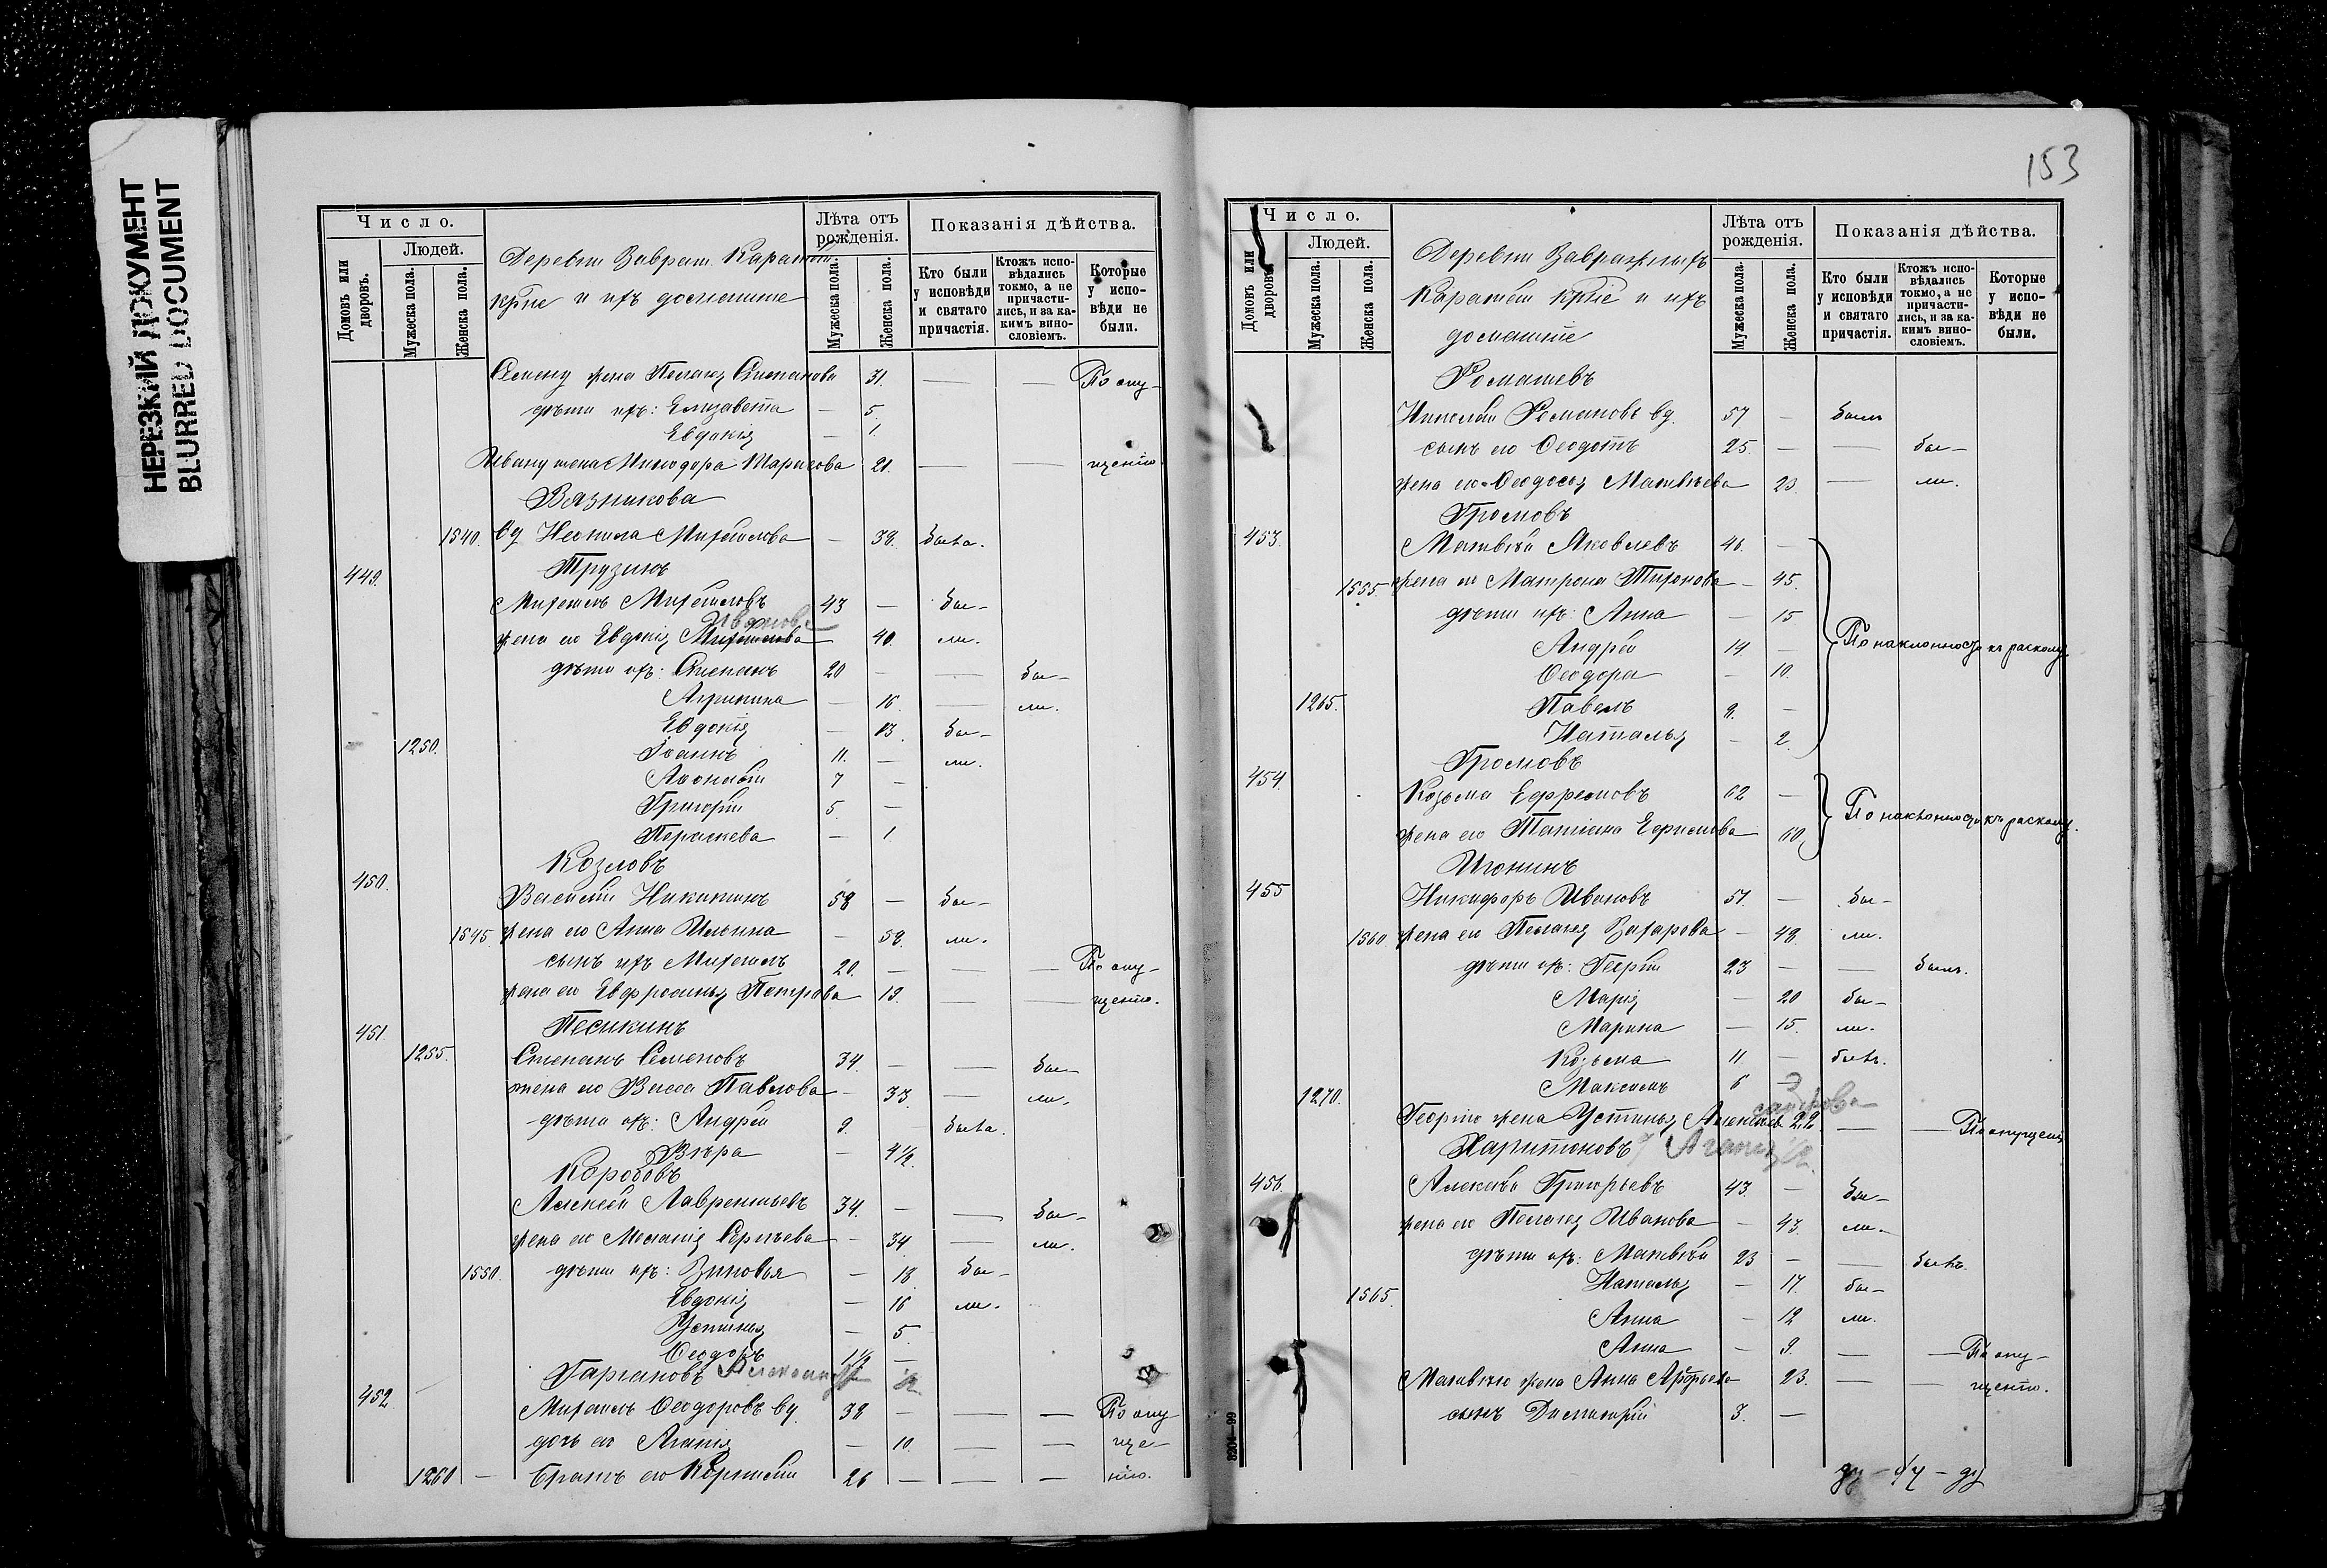 НЕРЕЗКИЙ ДОКУМЕНТ
BLURRED DOCUMENT
Число.
Домовъ или дворовъ.
Людей.
Мужеска пола.
Женска пола.
Деревни Завраж. Каратай
крне и ихъ домашние
Лѣта отъ рожденія.
Мужеска пола.
Женска пола.
Показанія дѣйства.
Кто были у исповѣди и святаго причастія.
Ктожъ исповѣдались токмо, а не причастились, и за какимъ винословіемъ.
Которые у исповѣди не были.
жена Пелагея Степанова 31. — — По опу-
дѣти ихъ: Елизавета — 5.
Евдокія — 1.
Ивану жена Минодора 21. — — щенію.
Вязникова
1540. вд Неонила Михайлова — 38. была.
449. Грузинъ
Михаилъ Михайловъ 43 — бы-
Иванова
жена его Евдокія Михайлова 40. ли.
дѣти ихъ: Степанъ 20 — — бы-
Агрипина — 16. — ли.
Евдокія — 13. бы-
1250. Іоаннъ 11. — ли.
Аѳонасій 7 —
Григорій 5. —
Параскева — 1
Козловъ
450. Василій Никитинъ 58 — бы-
1545. жена его Анна Ильина — 58. ли.
сынъ ихъ Михаилъ 20. — — — По опу-
жена его Евфросинья Петрова 19. — — щенію.
451. Песикинъ
1255. Степанъ Семеновъ 34. — — бы-
жена его Васса Павлова — 33. — ли.
дѣти ихъ: Андрей 9. была.
Вѣра — 4½.
Коробовъ
Алексѣй Лаврентьевъ 34. — — бы-
жена его Меланія Сергѣева — 34 — ли.
1550. дѣти ихъ: Зиновья — 18. бы-
Евдокія — 16 ли.
Устинья — 5.
Ѳеодоръ 1½ —
452
Михаилъ Ѳеодоровъ вд. 38 — — — По опу
дочь его Агапія — 10. — — ще-
1260 — Братъ его 26 — — — нію.
153
Число.
Домовъ или дворовъ.
Людей.
Мужеска пола.
Женска пола.
Деревни Завражныхъ
Каратай крне и ихъ
домашніе
Лѣта отъ рожденія.
Мужеска пола.
Женска пола.
Показанія дѣйства.
Кто были у исповѣди и святаго причастія.
Ктожъ исповѣдались токмо, а не причастились, и за какимъ винословіемъ.
Которые у исповѣди не были.
Ромашевъ
Николай Романовъ вд. 57 — былъ
сынъ его Ѳеодотъ 25. — — бы-
жена его Ѳеодосья Матвѣева 23. — ли.
Громовъ
453. Матвѣй Яковлевъ 46. —
1555. жена его Матрона Тихонова — 45.
дѣти ихъ: Анна — 15
По наклонности къ расколу
Андрей 14 —
Ѳеодора — 10.
1265. Павелъ 9. —
Наталья — 2.
Громовъ
454. Козьма Ефремовъ 62 —
По наклонности къ расколу.
жена его Татіана Ефимова 60.
Игонинъ
455 Никифоръ Ивановъ 51. — бы-
1560. жена его Пелагея Захарова — 48. ли.
дѣти ихъ: Георгій 23 — — былъ.
Марія — 20 бы-
Марина — 15. ли.
Козьма 11 — былъ.
1270. Максимъ 6 —
Георгію жена Устинья 22. — — По опущенію
Харитоновъ
456. Алексѣй Григорьевъ 43. — бы-
жена его Пелагея Иванова — 43. ли.
дѣти ихъ: Матвѣй 23 — — былъ.
1565. Наталья — 17. бы-
Анна — 12 ли.
Анна — 9. — — По опу-
Матвѣю жена Анна 23. — — щенію.
сынъ Димитрій 3. —
3204—99